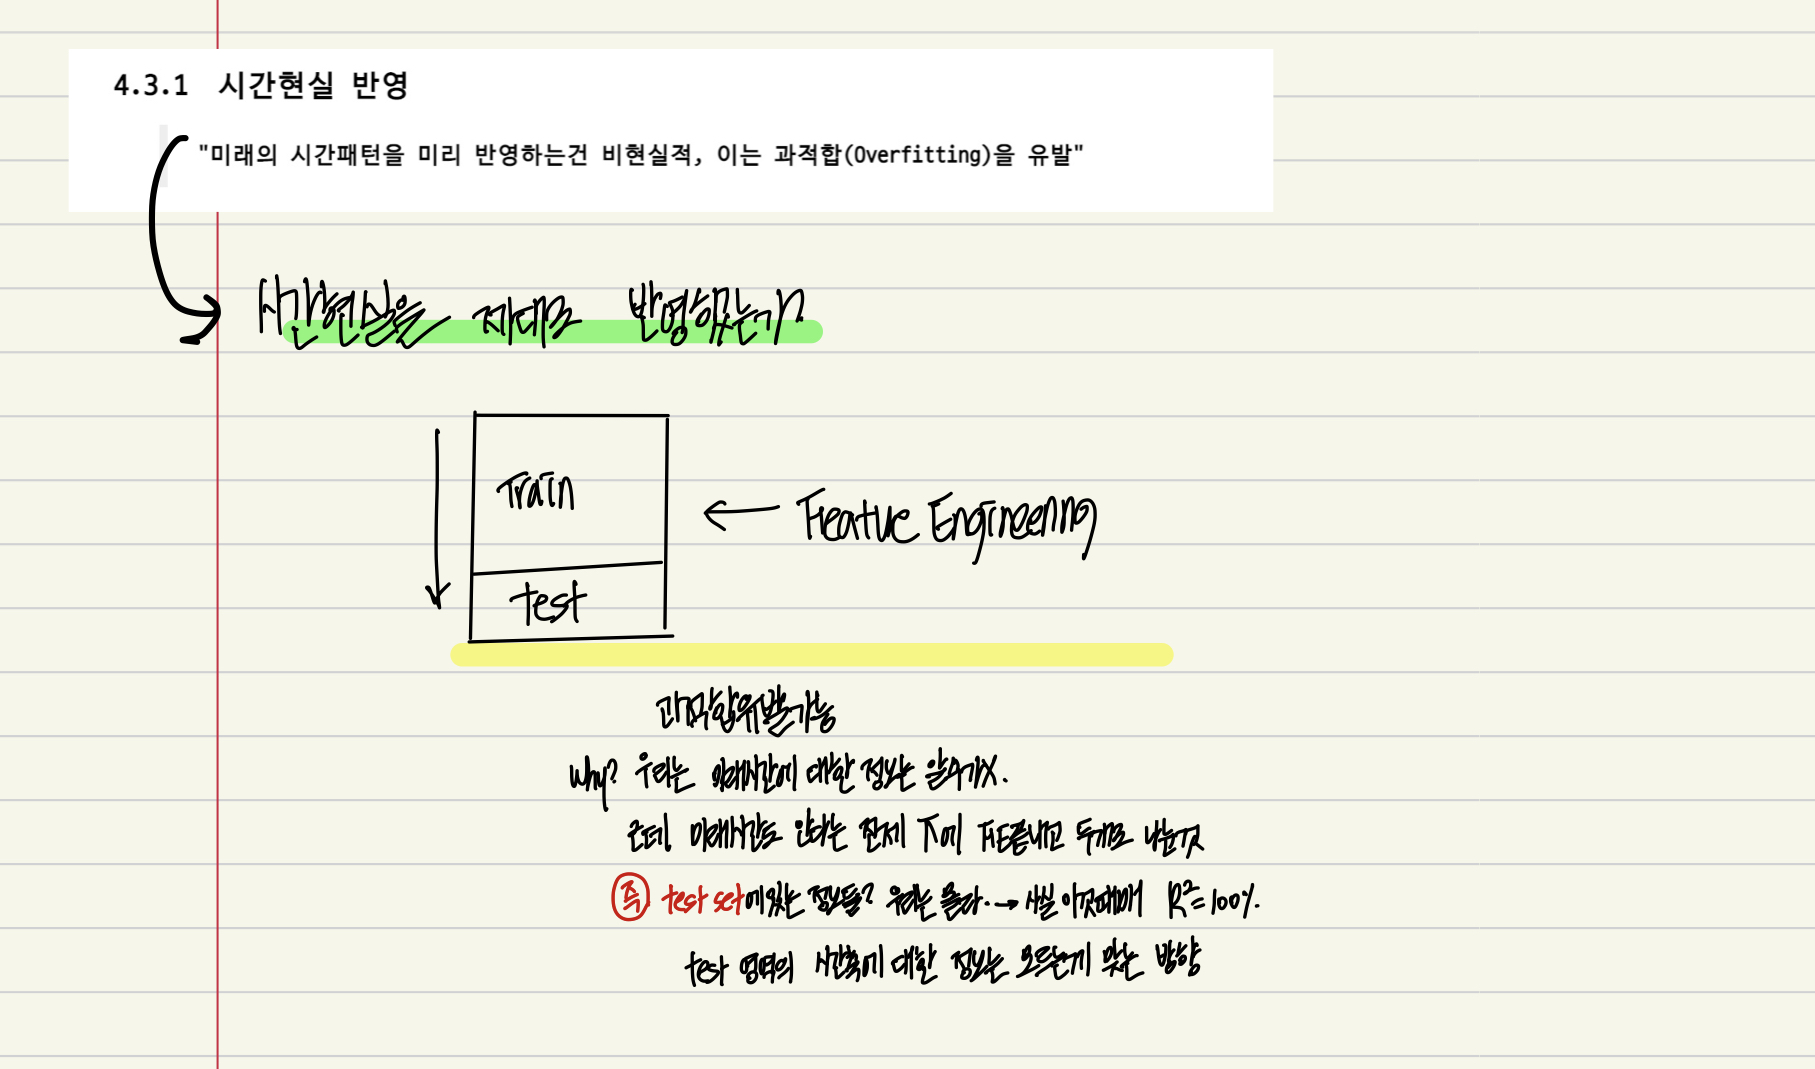 4.3.1 시간현실 반영
"미래의 시간패턴을 미리 반영하는건 비현실적, 이는 과적합(Overfitting)을 유발"
시간현실을 제대로 반영했는가?
Train
← Feature Engineering
test
과적합유발가능
why? 우리는 미래시간에 대한 정보는 알수가X.
근데 미래시간도 안다는 전제 下에 FE끝내고 두개로 나눈것
즉 test set에있는 정보들? 우리는 모른다. → 사실 이것때매 R²=100%.
test 영역의 시간축에 대한 정보는 모르는게 맞는 방향